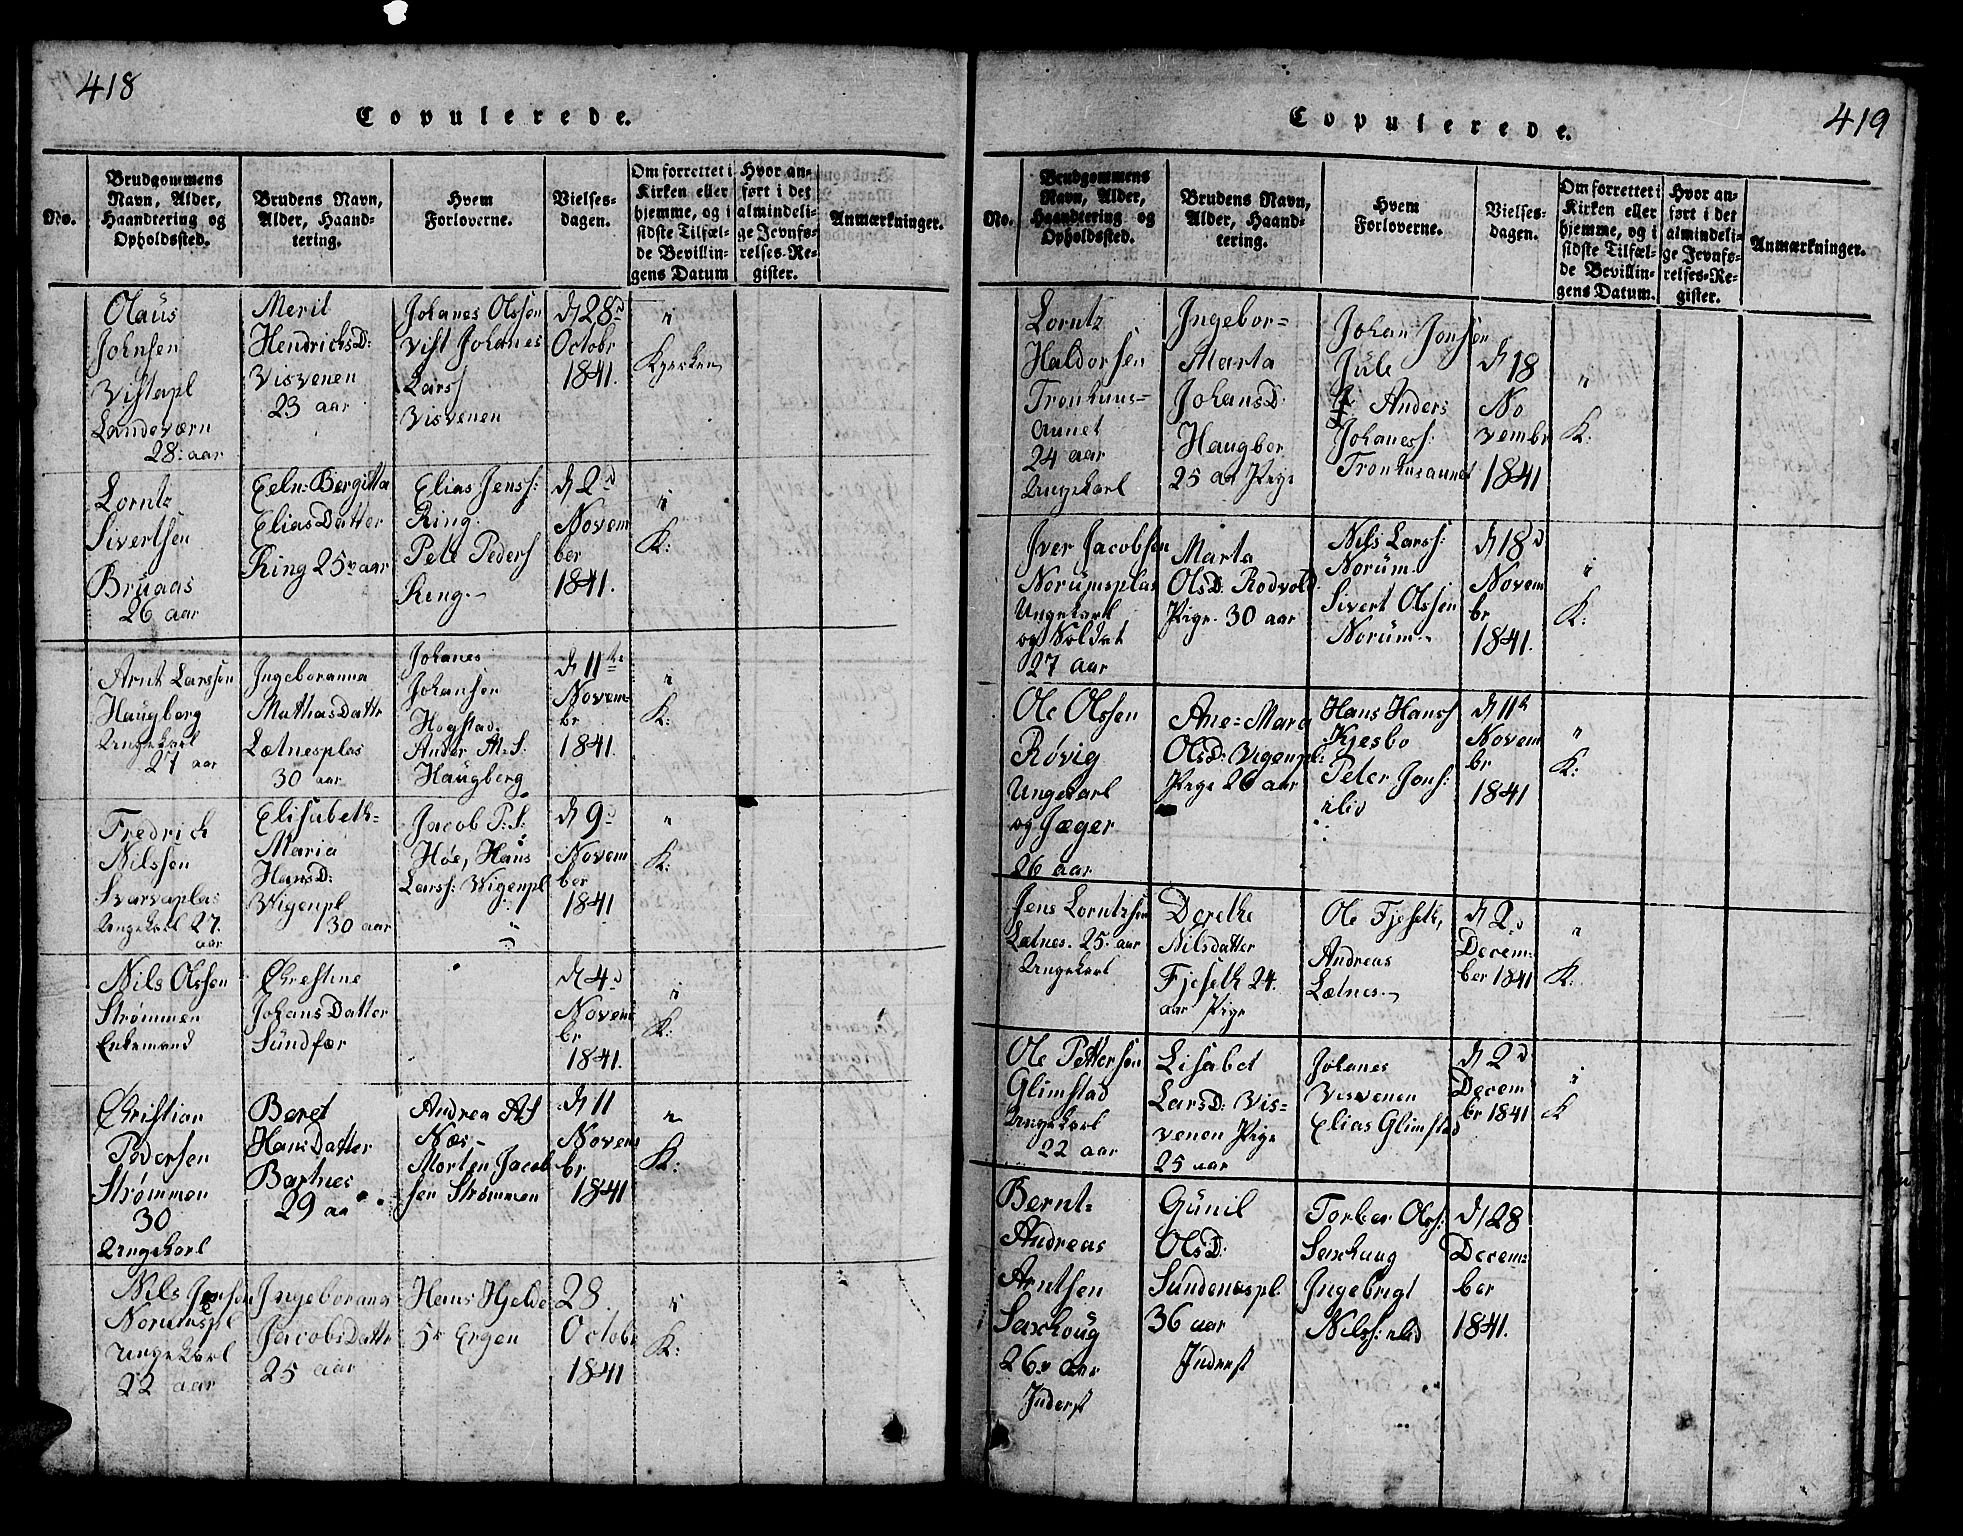 418
Copulerede.
No.
Brudgommens
Navn, Alder,
Haandtering og
Opholdssted.
Brudens Navn,
Alder, Haand-
tering.
Hvem
Forloverne.
Vielses-
dagen.
Om forrettet i
Kirken eller
hjemme, og i
sidste Tilfæl-
de Bevillin-
gens Datum
Hvor an-
ført i det
almindeli-
ge Jevnfø-
relses-Re-
gister.
Anmærkninger.
Olaus
Johnsen
Vistapl
Landeværn
28: aar
Merit
HendrichsD:
Visvenen
23 aar
Johanes Olssen
Vist Johanes
Larss
Visvenen
d 28d
Octobr
1841.
i
Kyerken
Lorntz
Sivertsen
Bruaas
26 aar
Eeln=Bergitta
EliasDatter
Ring 25 aar
Elias Jenss:
Ring.
Pete Peders
Ring.
d 2d
Novem
ber
1841.
i
K:
Arnt Larssen
Haugberg
Ungekarl
27 aar
Ingeboranna
MathasDattr
Lætnesplas
30 aar
Johanes
Johansen
Hogstad
Ander M:S:
Haugberg
d 11te
Novem-
br
1841.
"
K:
Fredrich
Nilssen
Svarvaplas
Ungekarl 27.
aar
Elisabeth=
Maria
HansD:
Wigenpl
30 aar
Jacob P:S:
Høe, Hans
Larss: Wigenpl
d 9d
Novem
ber
1841
"
K:
Nils Olssen
Strømmen
Enkemand
Christine
JohansDatter
Sundfær
d 4d
Novem
br
1841.
i
K:
Christian
Pedersen
Strømmen
30
Ungekarl
Beret
HansDatter
Bartnes
29 aa
Andrea As
Næs
Morten Jacob
sen Strømmen
d 11
Novem
br
1841
"
K:
Nils Jensen
Norumspl
Ungekarl
22 aar
Ingeborana
JacobsDattr
25 aar
Hans Hjelde
Sr Ergen
28
Octobr
1841
i
K:
419
Copulerede.
No.
Brudgommens
Navn, Alder,
Haandtering og
Opholdssted.
Brudens Navn,
Alder, Haand-
tering.
Hvem
Forloverne.
Vielses-
dagen.
Om forrettet i
Kirken eller
hjemme, og i
sidste Tilfæl-
de Bevillin-
gens Datum.
Hvor an-
ført i det
almindeli-
ge Jevnfø-
relses-Re-
gister.
Anmærkninger.
Lorntz
Haldorsen
Tronhuus=
aunet
24 aar
Ungekarl
Ingebor=
Marta
JohansD:
Haugber
25 aar Pige
Johan Jonsen
Jule
Anders
Johaness:
Tronhusaunet
d 18
No
vembr
1841
"
K:
Iver Jacobsen
Norumsplas
Ungekarl
og Soldat
27 aar
Marta
OlsD: Rodvold
Pige. 30 aar
Nils Larss:
Norum.
Sivert Olssen
Norum
d 18d
Novem
br
1841.
i
K:
Ole Olssen
Røvig
Ungekarl
og Jæger
26 aar
Ane=Mara
OlsD: Vigenpl:
Pige 26 aar
Hans Hanss
Kjesbo
Peter Jons:
ilid
d 11t
Novem
br
1841
"
K:
Jens Lorntzsen
Lætnes. 25. aar
Ungekarl
Derethe
Nilsdatter
Fjeseth 24.
aar Pige
Ole Fjeseth,
Andreas
Lætnes
d 2d
Decem-
ber 1841
"
K:
Ole Pettersen
Glimstad
Ungekarl
22 aar
Lisabet
LarsD: Vis=
venen Pige
25 aar
Johanes
Visvenen
Elias Glimstad
d 2d
Decem
br 1841
i
K
Bernt=
Andreas
Arntsen
Saxhoug
26 aar
Inderst
Gunil
OlsD:
Sundenspl
36 aar
Inderst
Torber Olss:
Saxhaug
Ingebrigt
Nilss: ilid
d 28
Decem-
ber
1841.